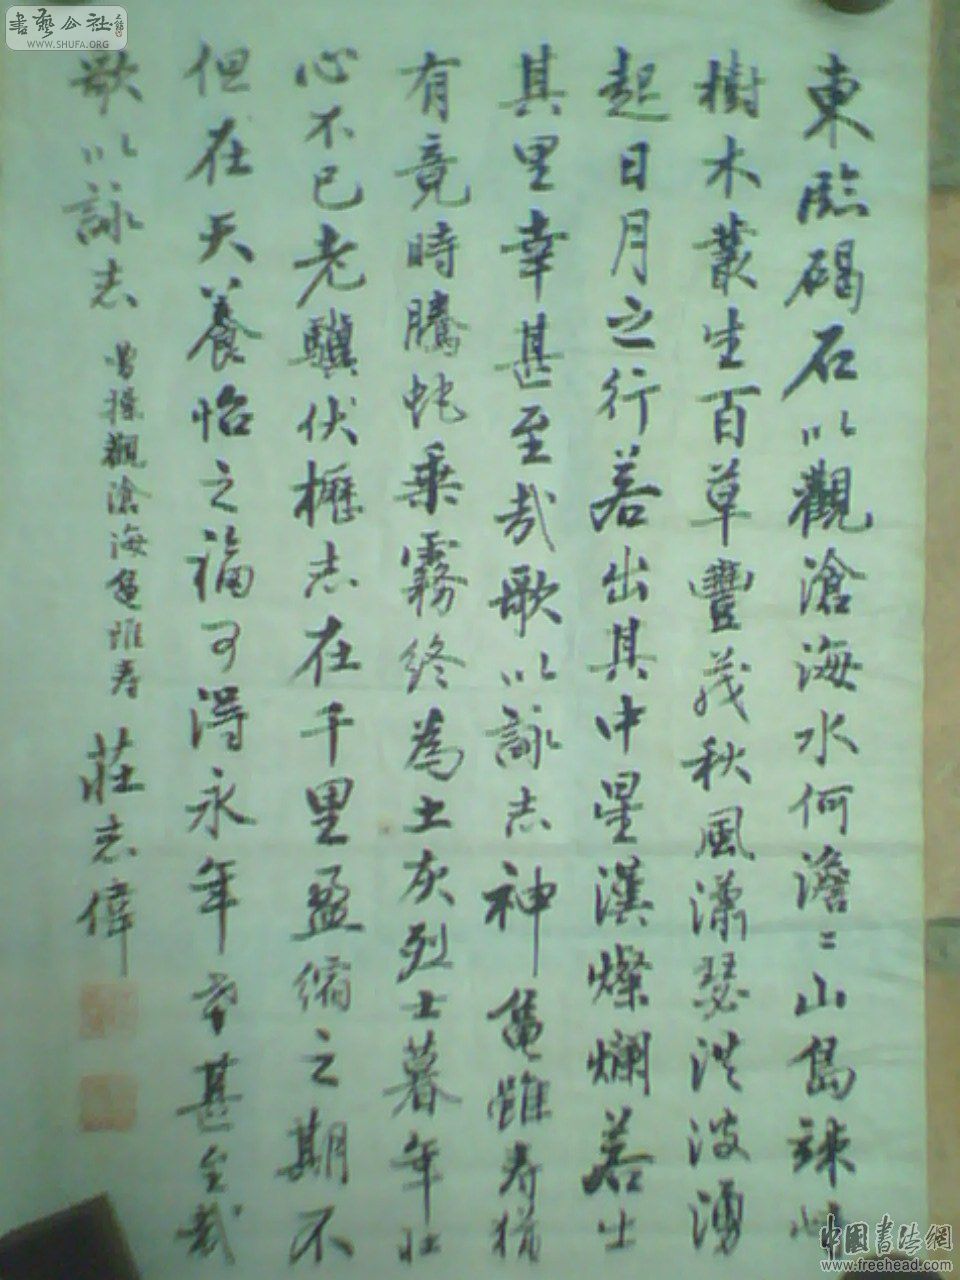 東臨碣石以觀滄海水何澹〻山島竦峙
樹木叢生百草豐茂秋風瀟瑟洪波湧
起日月之行若出其中星漢燦爛若出
其里幸甚至哉歌以詠志神龜雖壽猶
有竟時騰蛇乘霧終為土灰烈士暮年壯
心不已老驥伏櫪志在千里盈縮之期不
但在天養怡之福可得永年幸甚至哉
歌以詠志 曹操觀滄海龜雖壽 莊志偉
書藝公社
WWW.SHUFA.ORG
中國書法網
www.freehead.com